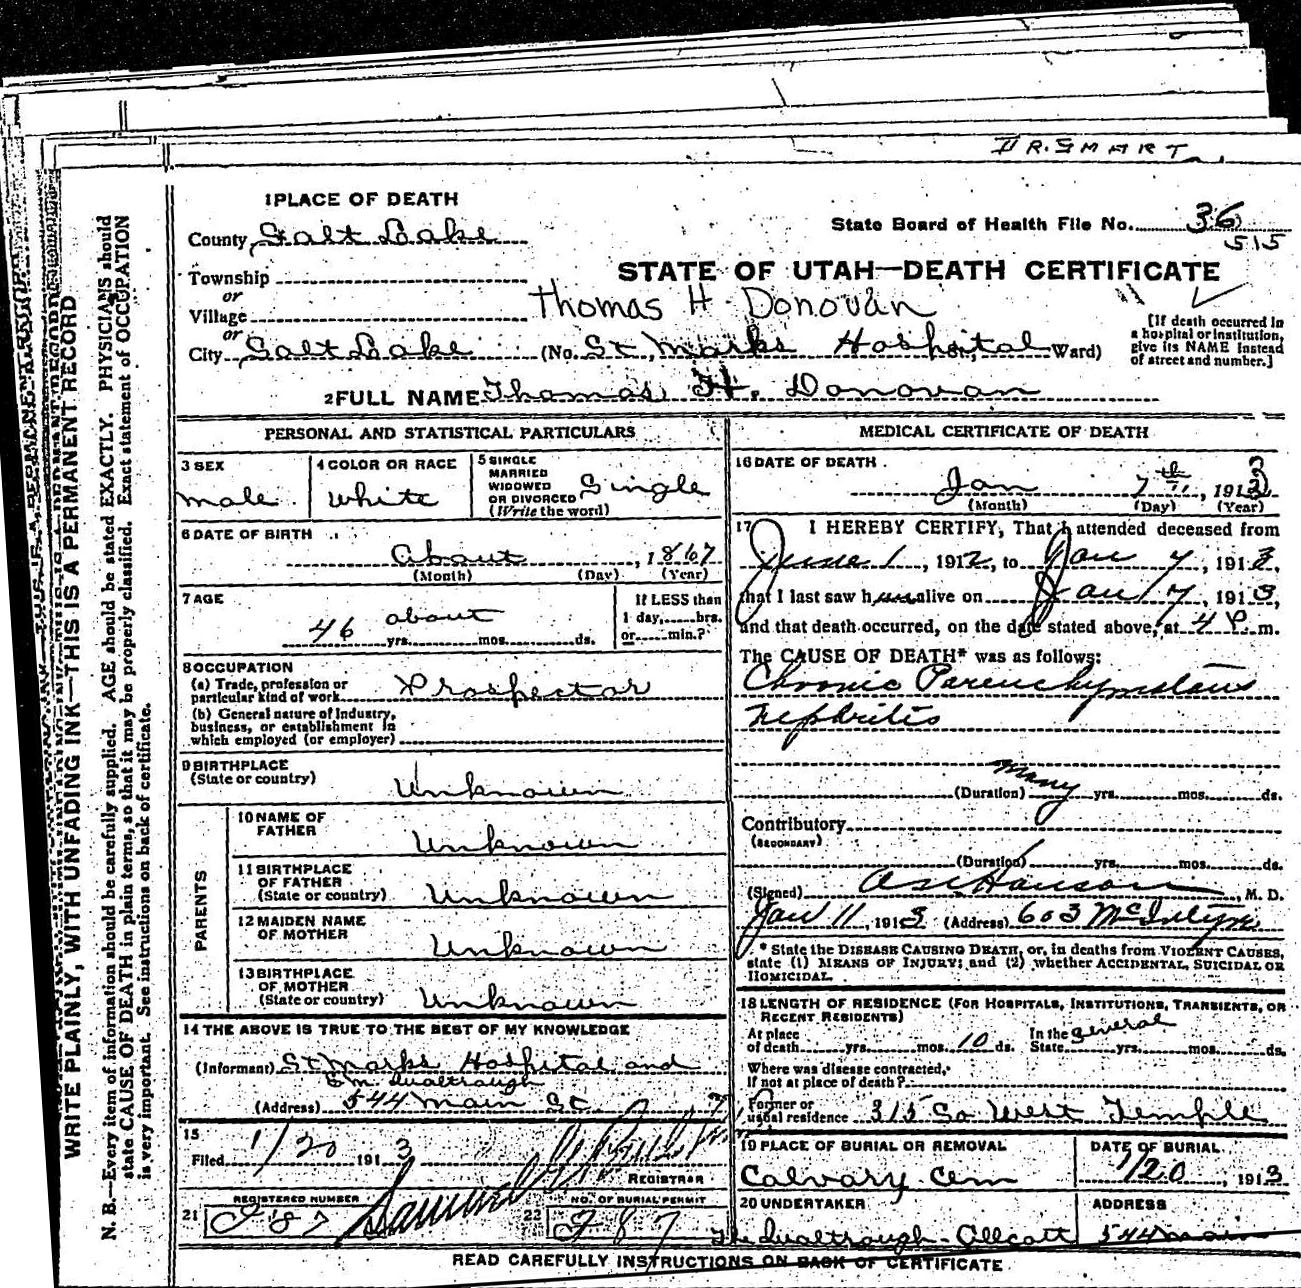 DR. SMART
1 PLACE OF DEATH
County Salt Lake
State Board of Health File No. 36
515
Township
STATE OF UTAH—DEATH CERTIFICATE
or
Village
Thomas H Donovan
or
City Salt Lake (No. St Marks Hospital Ward)
[If death occurred in
a hospital or institution,
give its NAME instead
of street and number.]
2 FULL NAME Thomas H. Donovan
PERSONAL AND STATISTICAL PARTICULARS
3 SEX
male
4 COLOR OR RACE
White
5 SINGLE
MARRIED
WIDOWED
OR DIVORCED
(Write the word)
Single
6 DATE OF BIRTH
about, 1867
(Month) (Day) (Year)
7 AGE
about
46 yrs. mos. ds.
If LESS than
1 day, hrs.
or min.?
8 OCCUPATION
(a) Trade, profession or
particular kind of work Prospector
(b) General nature of Industry,
business, or establishment in
which employed (or employer)
9 BIRTHPLACE
(State or country) Unknown
PARENTS
10 NAME OF
FATHER Unknown
11 BIRTHPLACE
OF FATHER
(State or country) Unknown
12 MAIDEN NAME
OF MOTHER Unknown
13 BIRTHPLACE
OF MOTHER
(State or country) Unknown
14 THE ABOVE IS TRUE TO THE BEST OF MY KNOWLEDGE
(Informant) St Marks Hospital and
(Address) 544 Main St.
15
Filed 1/20 1913
REGISTRAR
REGISTERED NUMBER
21
NO. OF BURIAL PERMIT
22
MEDICAL CERTIFICATE OF DEATH
16 DATE OF DEATH
Jan 7th, 1913
(Month) (Day) (Year)
17 I HEREBY CERTIFY, That I attended deceased from
June 1, 1912, to Jan 7, 1913,
that I last saw him alive on Jan 7, 1913,
and that death occurred, on the date stated above, at 4 P. m.
The CAUSE OF DEATH* was as follows:
Chronic Parenchymatous
Nephritis
(Duration) many yrs. mos. ds.
Contributory
(SECONDARY)
(Duration) yrs. mos. ds.
(Signed) Hanson, M. D.
Jan 11, 1913 (Address) 603 McIntyre
* State the DISEASE CAUSING DEATH, or, in deaths from VIOLENT CAUSES,
state (1) MEANS OF INJURY; and (2) whether ACCIDENTAL, SUICIDAL OR
HOMICIDAL.
18 LENGTH OF RESIDENCE (FOR HOSPITALS, INSTITUTIONS, TRANSIENTS, OR
RECENT RESIDENTS)
At place
of death yrs. mos. 10 ds.
In the
State several yrs. mos. ds.
Where was disease contracted,
If not at place of death?
Former or
usual residence 315 So West Temple
19 PLACE OF BURIAL OR REMOVAL
Calvary Cem
DATE OF BURIAL
1/20, 1913
20 UNDERTAKER
ADDRESS
544 Main
READ CAREFULLY INSTRUCTIONS ON BACK OF CERTIFICATE
WRITE PLAINLY, WITH UNFADING INK—THIS IS A PERMANENT RECORD
N. B.—Every item of information should be carefully supplied. AGE should be stated EXACTLY. PHYSICIANS should
state CAUSE OF DEATH in plain terms, so that it may be properly classified. Exact statement of OCCUPATION
is very important. See instructions on back of certificate.